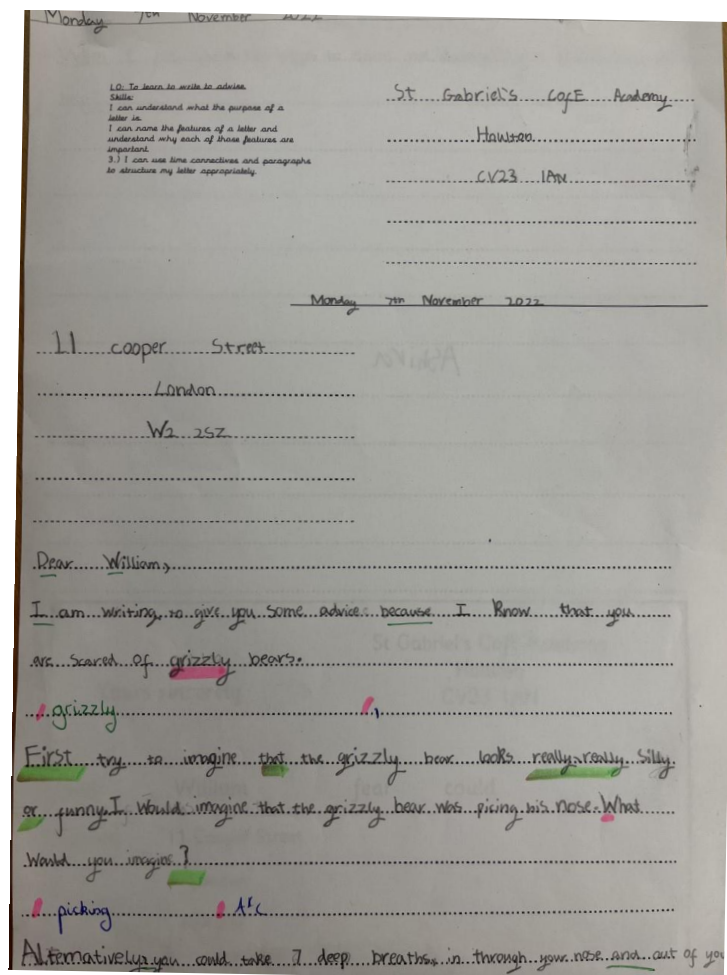 Monday 7th November 2022
LO: To learn to write to advise
Skills:
I can understand what the purpose of a
letter is.
I can name the features of a letter and
understand why each of those features are
important.
3.) I can use time connectives and paragraphs
to structure my letter appropriately.
St Gabriel's CofE Academy
Houlton
CV23 1AN
Monday 7th November 2022
11 cooper Street
London
W2 2SZ
Dear William,
I am writing to give you some advice because I know that you
are scared of grizzly bears.
grizzly
First try to imagine that the grizzly bear looks really really silly
or funny. I would imagine that the grizzly bear was picing his nose. What
would you imagine?
picking
Alternatively, you could take 7 deep breaths in through your nose and out of you